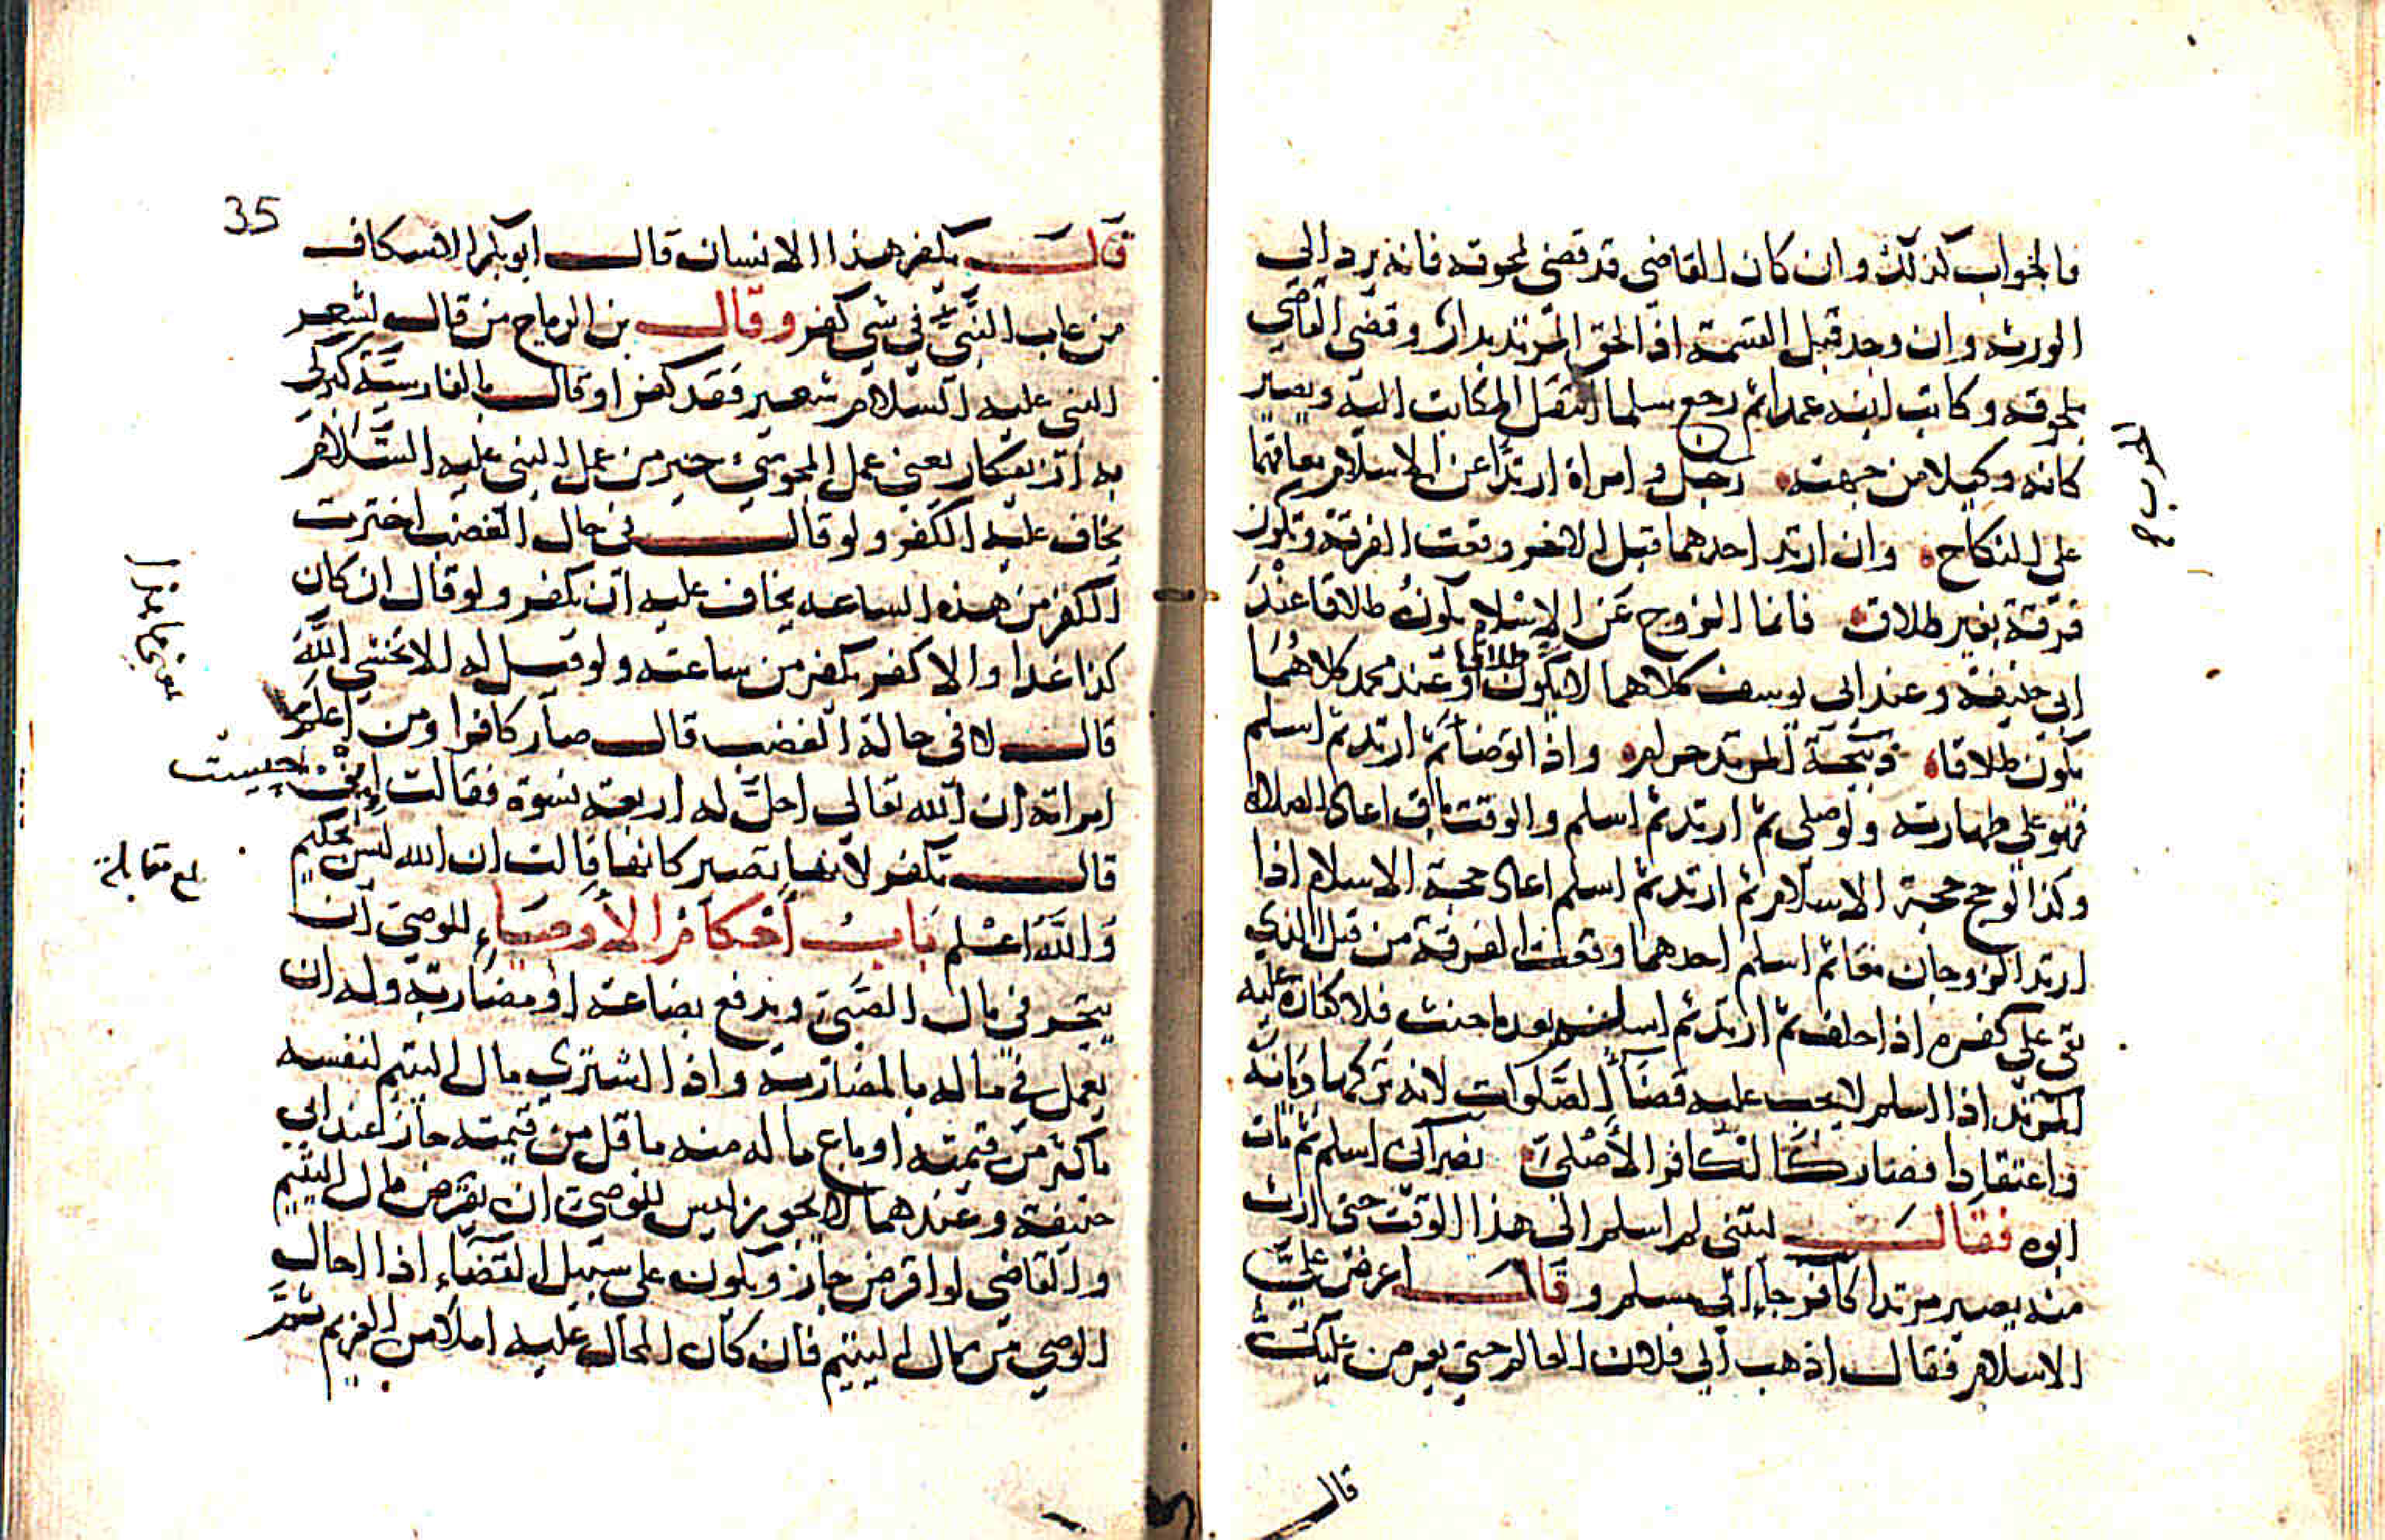 فالجواب كذلك وان كان القاضي قد قضى لحوقه فانه يرد الى
الورثه وان وجد قبل القسمة اذا لحق المرتد بدار وقضى القاضي
بلحوقه وكاتب ابنه عبدا ثم رجع مسلما انتقل المكاتب اليه ويصير
كانه وكيلا من جهته رجل وامراة ارتدا عن الاسلام معا فهما
على النكاح وان ارتد احدهما قبل الاخر وقعت الفرقة وتكون
فرقة بغير طلاق فاما الزوج عن الاسلام يكون طلاقا عند
ابي حنيفة وعند ابي يوسف كلاهما لا يكون طلاقا وعند محمد كلاهما
يكون طلاقا ذبيحة المرتد حرام واذا توضأ ثم ارتد ثم اسلم
فهو على طهارته ولو صلى ثم ارتد ثم اسلم والوقت باق اعاد الصلاة
وكذا لو حج حجة الاسلام ثم ارتد ثم اسلم اعاد حجة الاسلام اذا
ارتد الزوجان معا ثم اسلم احدهما وقعت الفرقة من قبل الذي
بقى على كفره اذا حلف ثم ارتد ثم اسلم بعده حنث فلا كفارة عليه
المرتد اذا اسلم لا يجب عليه قضاء الصلوات لانه تركها ديانة
واعتقادا فصار كالكافر الاصلي نصراني اسلم ثم مات
ابوه فقال ليتني لم اسلم الى هذا الوقت حتى ارث
منه يصير مرتدا كافر جاء الى مسلم وقال اعرض علي
الاسلام فقال اذهب الى فلان العالم حتى يعرض عليك
قال
35
قال يكفر هذا الانسان قال ابو بكر الاسكاف
من عاب النبي في شي كفر وقال بن الرماح من قال لشعر
النبي عليه السلام شعير فقد كفر او قال بالفارسية
يعني عمل المجوسي خير من عمل النبي عليه السلام
يخاف عليه الكفر ولو قال في حال الغضب اخترت
الكفر من هذه الساعه يخاف عليه ان يكفر ولو قال ان كان
كذا غدا والا كفر يكفر من ساعته ولو قيل له الا تخشى الله
قال لا في حالة الغضب قال صار كافرا ومن اعلم
امراته ان الله تعالى احل له اربعة نسوة فقالت
قال تكفر لانها تصير كانها قالت ان الله ليس بحكيم
والله اعلم باب احكام الاوصياء للوصي ان
يتجر في مال الصبي ويدفع بضاعة او مضاربة وله ان
يعمل في ماله بالمضاربة واذا اشترى مال اليتيم لنفسه
باكثر من قيمته او باع ماله منه باقل من قيمته جاز عند ابي
حنيفة وعندهما لا يجوز ليس للوصي ان يقرض مال اليتيم
والقاضي لو اقرض جاز ويكون على سبيل القضاء اذا احال
الوصي من مال اليتيم فان كان المحال عليه املا من الغريم